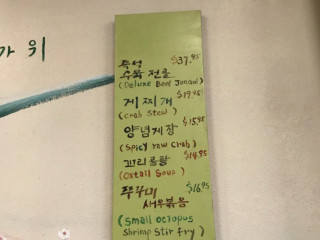 가위
특성 $37.95
수육 전골
(Deluxe Beef Jungol)
게 찌개 $19.95
(Crab Stew)
양념게장 $15.95
(Spicy raw Crab)
꼬리곰탕 $14.95
(Oxtail Soup)
쭈꾸미 $16.95
새우볶음
(Small octopus
Shrimp Stir fry)